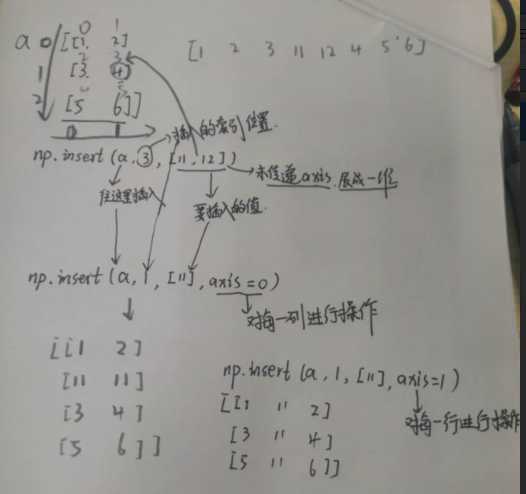 0 1
a 0 [[1. 2]
[1 2 3 11 12 4 5 6]
2 3
1 [3. 4]
2 [5 6]]
0 1
插入的索引位置.
np.insert (a, 3, [11, 12])
未传递axis. 展成一维
往这里插入
要插入的值.
np.insert (a, 1, [11], axis=0)
对每一列进行操作
[[1 2]
[11 11]
[3 4]
[5 6]]
np.insert (a, 1, [11], axis=1)
对每一行进行操作
[[1 11 2]
[3 11 4]
[5 11 6]]